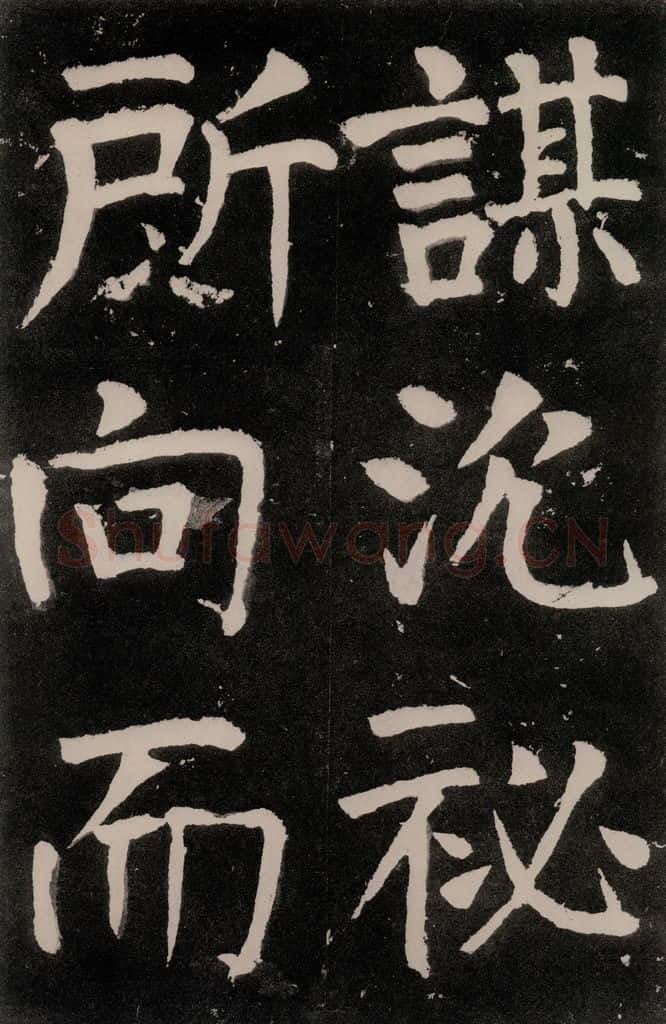 謀沉祕
所向而
Shufawang.CN